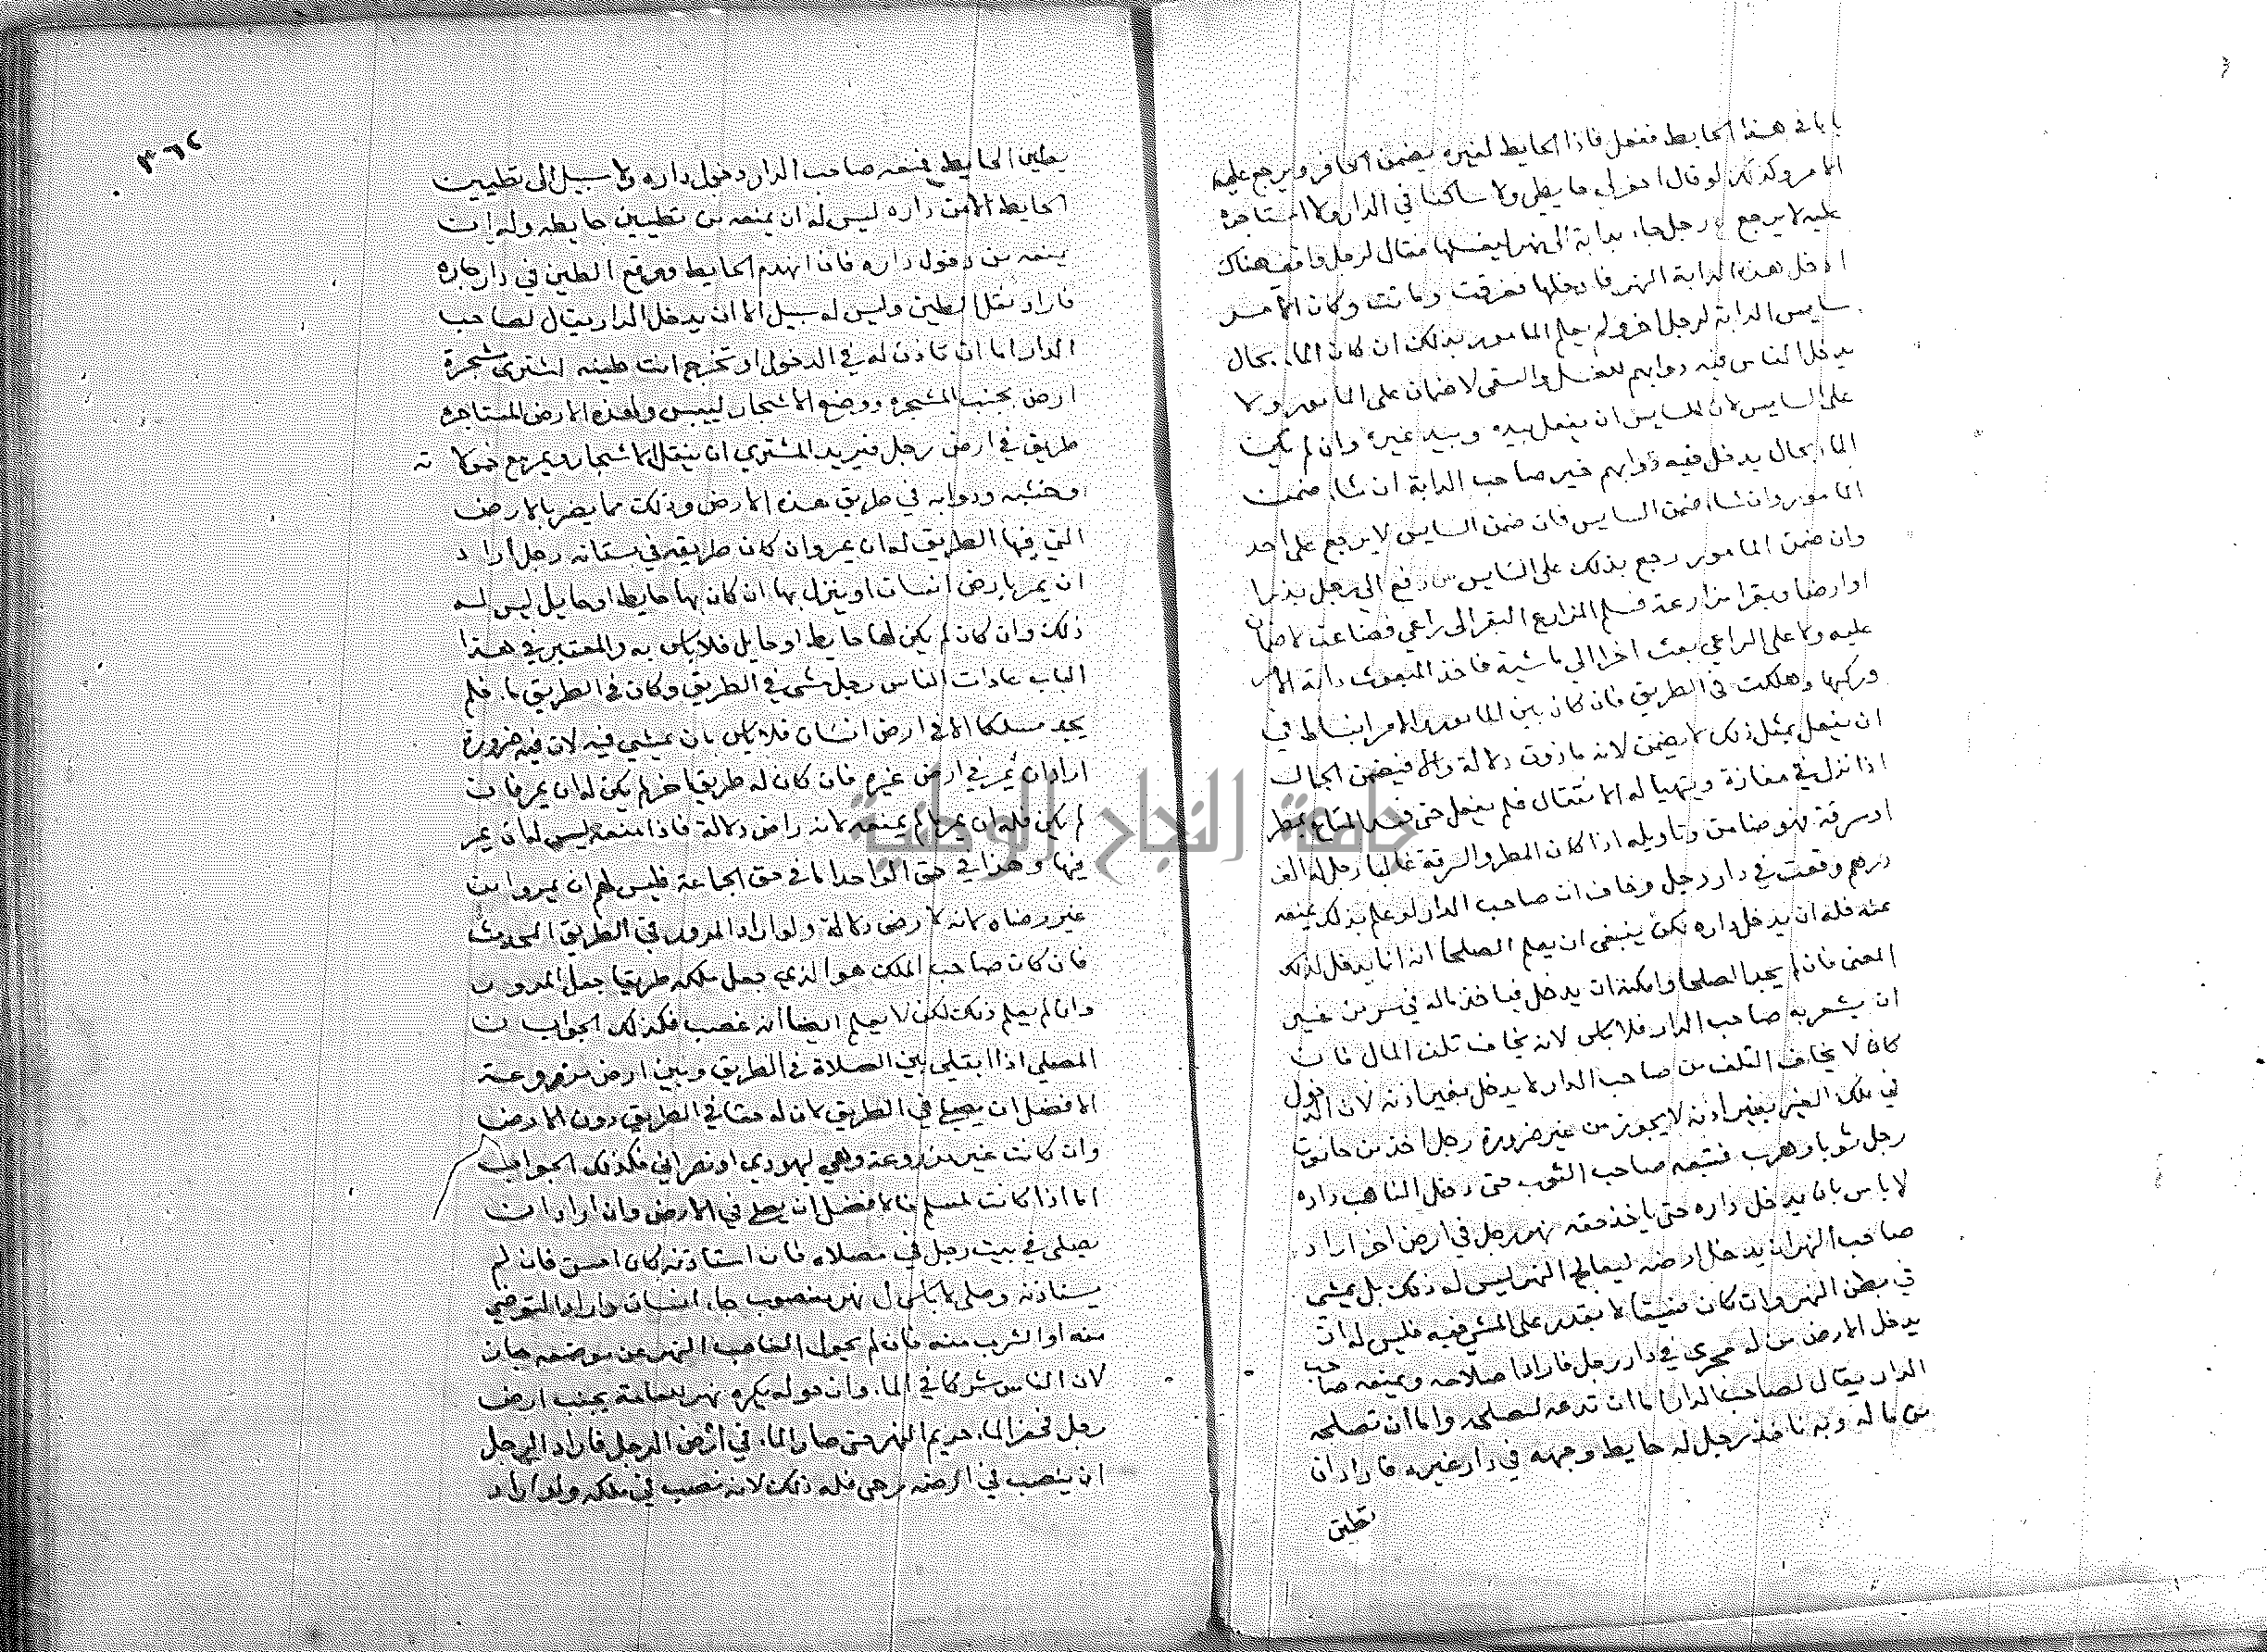 بابا في هذا الحايط ففعل فاذا الحايط لغيره يضمن الحافر ويرجع عليه
الامر وكذلك لو قال احفر لي حايطي ولا ساكنا في الدار ولا استاجره
عليه لا يرجع رجل جاء بدابة الى نهر ليغسلها فقال لرجل واقف هناك
ادخل هذه الدابة النهر فادخلها فغرقت وماتت وكان الامر
سايس الدابة لرجل اخر ولم يعلم المامور بذلك ان كان الماء بحال
يدخل الناس فيه دوابهم للغسل والسقي لا ضمان على المامور ولا
على السايس لان للسايس ان يفعل بيده وبيد غيره وان لم يكن
الماء بحال يدخل فيه دوابهم خير صاحب الدابة ان شاء ضمن
المامور وان شاء ضمن السايس فان ضمن السايس لا يرجع على احد
وان ضمن المامور رجع بذلك على السايس من دفع الى رجل بذرا
او ارضا وبقرا مزارعة فسلم المزارع البقر الى راعي فضاعت لا ضمان
عليه ولا على الراعي بعث اخر الى ماشية فاخذ المبعوث دابة الامر
وركبها وهلكت في الطريق فان كان بين المامور والامر انبساط في
ان يفعل بمثل ذلك لا يضمن لانه ماذون دلالة والا فيضمن الجمال
اذا نزل في مفازة ويتهيا له الانتقال فلم يفعل حتى فسد المتاع بمطر
او سرقة فهو ضامن وتاويله اذا كان المطر والسرقة غالبا رجل له الف
درهم وقعت في دار رجل وخاف ان صاحب الدار لو علم بذلك يمنعه
عنه فله ان يدخل داره لكن ينبغي ان يعلم الصلحا انه انما يدخل لذلك
المعنى فان لم يجد الصلحا وامكنه ان يدخل فياخذ ماله في سر من غير
ان يشعر به صاحب الدار فلا باس لانه يخاف تلف المال فان
كان لا يخاف التلف من صاحب الدار لا يدخل بغير اذنه لان الدخول
في ملك الغير بغير اذنه لا يجوز من غير ضرورة رجل اخذ من حانوت
رجل ثوبا وهرب فتبعه صاحب الثوب حتى دخل الناهب داره
لا باس بان يدخل داره حتى ياخذ حقه نهر رجل في ارض اخر اراد
صاحب النهر ان يدخل ارضه ليعالج النهر ليس له ذلك بل يمشي
في بطن النهر وان كان ضيقا لا يقدر على المشي فيه فليس له ان
يدخل الارض من له مجرى في دار رجل فاراد اصلاحه ويمنعه صاحب
الدار يقال لصاحب الدار اما ان تدعه ليصلحه واما ان تصلحه
من ماله وبه ناخذ رجل له حايط وجهه في دار غيره فاراد ان
تطيين
٣٦٤
يطين الحايط فيمنعه صاحب الدار دخول داره ولا سبيل الى تطيين
الحايط الا من داره ليس له ان يمنعه من تطيين حايطه وله ان
يمنعه من دخول داره فان انهدم الحايط ووقع الطين في دار جاره
فاراد نقل الطين وليس له سبيل الا ان يدخل الدار يقال لصاحب
الدار اما ان تاذن له في الدخول او تخرج انت طينه اشترى شجرة
ارض بجنب المشجرة ووضع الاشجار لييبس ولهذه الارض المستاجرة
طريق في ارض رجل فيريد المشتري ان ينقل الاشجار ويمر مع حمولاته
وخشبه ودوابه في طريق هذه الارض وذلك مما يضر بالارض
التي فيها الطريق له ان يمر وان كان طريقه في بستانه رجل اراد
ان يمر بارض انسان او ينزل بها ان كان بها حايط او حايل ليس له
ذلك وان كان لم يكن لها حايط او حايل فلا باس به والمعتبر في هذا
الباب عادات الناس رجل مشى في الطريق وكان في الطريق ماء فلم
يجد مسلكا الا في ارض انسان فلا باس بان يمشي فيه لان فيه ضرورة
اراد ان يمر في ارض غيره فان كان له طريق اخر لم يكن له ان يمر فان
لم يكن فله ان يمر ما لم يمنعه لانه راض دلالة فاذا منعه ليس له ان يمر
فيها وهذا في حق الواحد اما في حق الجماعة فليس لهم ان يمروا من
غير رضاه لانه لا رضى دلالة ولو اراد المرور في الطريق المحدث
فان كان صاحب الملك هو الذي جعل ملكه طريقا جعل المرور
وان لم يعلم ذلك لكن لا يعلم ايضا انه غصب فكذلك الجواب
المصلي اذا ابتلي بين الصلاة في الطريق وبين ارض مزروعة
الافضل ان يصلي في الطريق لان له حقا في الطريق دون الارض
وان كانت غير مزروعة وهي ليهودي او نصراني فكذلك الجواب
اما اذا كانت لمسلم فالافضل ان يصلي في الارض وان اراد ان
يصلي في بيت رجل في مصلاه فان استاذنه كان احسن فان لم
يستاذنه وصلى لا باس نهر مغصوب جاء انسان واراد التوضي
منه او الشرب منه فان لم يحول الغاصب النهر عن موضعه جاز
لان الناس شركا في الماء وان حوله يكره نهر للعامة بجنب ارض
رجل فحفر الماء حريم النهر حتى صار الماء في ارض الرجل فاراد الرجل
ان ينصب في ارضه رحى فله ذلك لانه نصب في ملكه ولو اراد
جامعة النجاح الوطنية